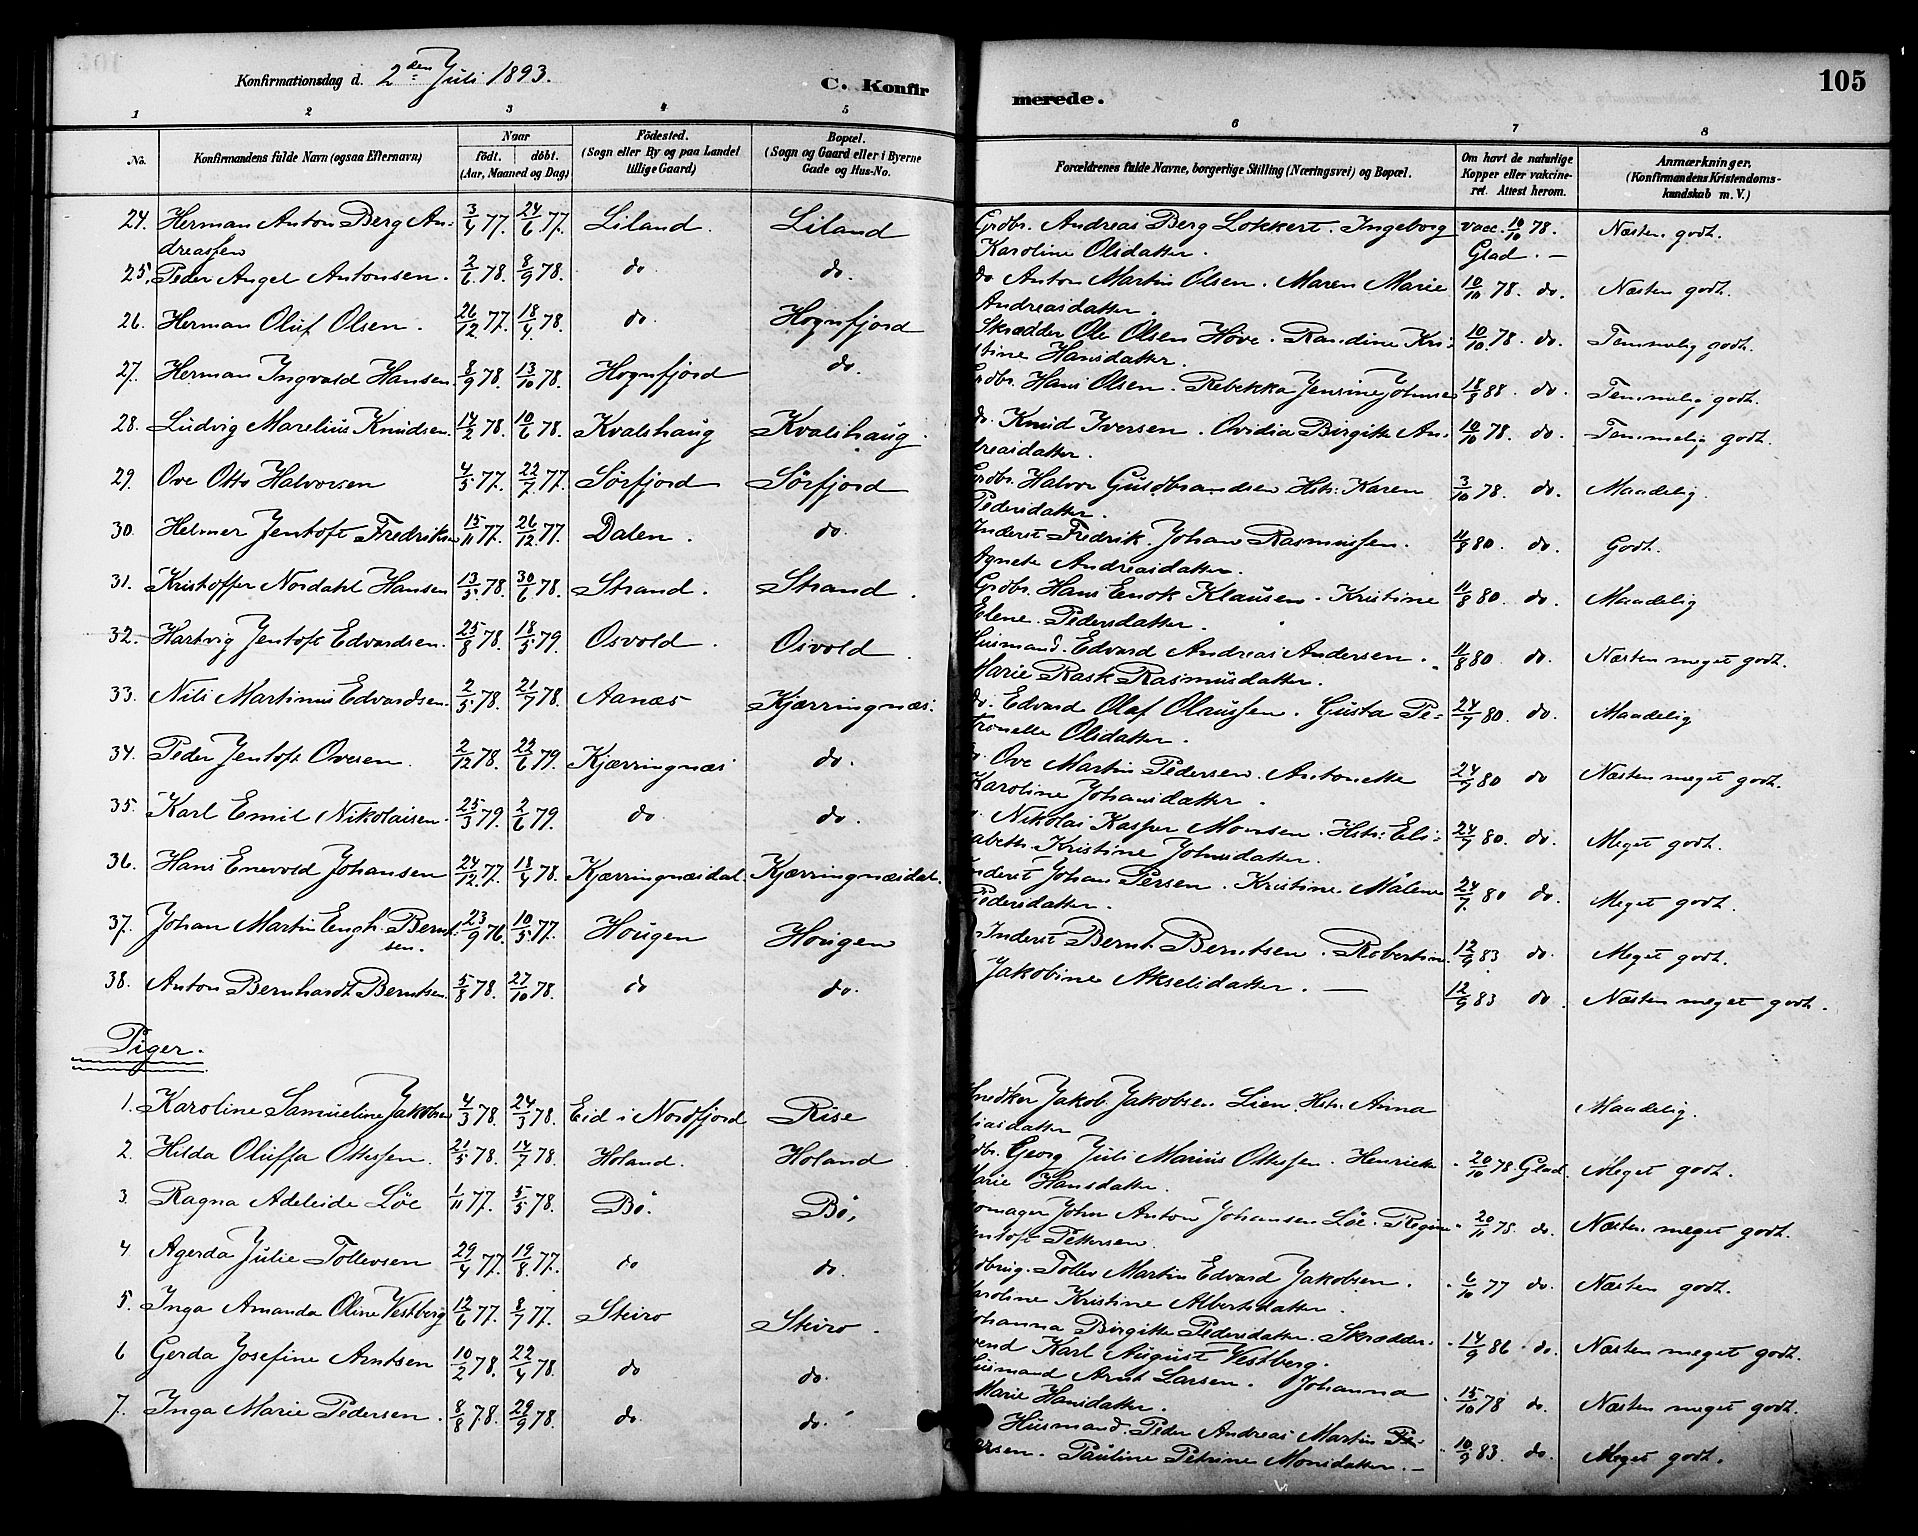 Konfirmationsdag d. 2den Juli 1893.
C. Konfirmerede.
105
1 2 3 4 5 6 7 8
No. Konfirmandens fulde Navn (ogsaa Efternavn) Naar født. døbt. (Aar, Maaned og Dag) Födested. (Sogn eller By og paa Landet tillige Gaard) Bopæl. (Sogn og Gaard eller i Byerne Gade og Hus-No. Forældrenes fulde Navne, borgerlige Stilling (Næringsvei) og Bopæl. Om havt de naturlige Kopper eller vakcineret. Attest herom. Anmærkninger. (Konfirmandens Kristendomskundskab m. V.)
24. Herman Anton Berg Andreassen 3/4 77. 24/6 77. Liland. Liland Grdbr. Andreas Berg Lokkert. Ingeborg Karoline Olsdatter. vacc. 10/10 78. Glad. — Næsten godt.
25. Peder Angel Antonsen. 2/6 78. 8/9 78. do do. do Anton Martin Olsen. Maren Marie Andreasdatter. 10/10 78. do. Næsten godt.
26. Herman Oluf Olsen. 26/12 77. 18/4 78. do. Hognfjord Skrædder Ole Olsen Höve. Randine Kristine Hansdatter. 10/10 78. do. Temmelig godt.
27. Herman Ingvald Hansen. 8/9 78. 13/10 78. Hognfjord do. Grdbr. Hans Olsen. Rebekka Jensine Johnsen 18/8 88. do. Temmelig godt.
28. Ludvig Marelius Knudsen. 14/2 78. 10/6 78. Kvalshaug Kvalshaug. do. Knud Iversen. Ovidia Birgitte Andreasdatter. 10/10 78. do. Temmelig godt.
29. Ove Otto Halvorsen 4/5 77. 22/7 77. Sørfjord Sørfjord Grdbr. Halvor Guldbrandsen Hstr: Karen Pedersdatter. 3/10 78. do. Maadelig.
30. Helmer Jentoft Fredriksen 15/11 77. 26/12 77. Dalen. do. Inderst Fredrik Johan Rasmussen. Agnete Andreasdatter. 11/8 80. do. Godt.
31. Kristoffer Nordahl Hansen 13/5 78. 30/6 78. Strand. Strand. Grdbr. Hans Enok Klausen. Kristine Elene Pedersdatter. 11/8 80. do. Maadelig
32. Hartvig Jentoft Edvardsen. 25/8 78. 18/5 79. Osvold. Osvold. Husmand. Edvard Andreas Andersen. Marie Rask Rasmusdatter. 11/8 80 do. Næsten meget godt.
33. Nils Martinus Edvardsen. 2/5 78. 21/7 78. Aanæs Kjærringnæs. do. Edvard Olaf Olaussen. Gusta Petronelle Olsdatter. 24/7 80. do. Maadelig
34. Peder Jentoft Ovesen. 2/12 78. 22/6 79. Kjærringnæs do. Ove Martin Pedersen. Antonette Karoline Johansdatter. 24/7 80 do Næsten meget godt.
35. Karl Emil Nikolaisen. 25/3 79. 2/6 79. do do. Nikolai Kasper Monsen. Hstr: Elisabeth Kristine Johnsdatter. 24/7 80. do. Meget godt.
36. Hans Enevold Johansen 24/12 77. 18/4 78. Kjærringnæsdal. Kjærringnæsdal. Inderst Johan Persen. Kristine Målene Pedersdatter. 24/7 80 do. Meget godt.
37. Johan Martin Engh. Berntsen. 23/9 76. 10/5 77. Hougen Hougen Inderst Bernt Berntsen. Robertine 12/9 83 do. Meget godt.
38. Anton Bernhardt Berntsen. 5/8 78. 27/10 78. do do. Jakobine Akselsdatter. — 12/9 83 do. Næsten meget godt.
Piger.
1. Karoline Samueline Jakobsen 4/3 78. 24/3 78. Eid i Nordfjord Rise Snedker Jakob Jakobsen Lien. Hstr: Anna Eliasdatter Maadelig.
2. Hilda Oluffa Ottessen. 21/5 78. 14/7 78. Holand. Holand. Grdbr. Georg Juli Marius Ottessen. Henriette Marie Hansdatter. 20/10 78. Glad. Meget godt.
3 Ragna Adeleide Löe 1/11 77. 5/5 78. Bö. Bö. Skomager John Anton Johansen Löe. Regine Jentoft Pettersen. 20/11 78. do. Næsten meget godt.
4. Agerda Julie Tollevsen 29/4 77. 19/8 77. do do. Gdbrug. Tollev Martin Edvard Jakobsen. Karoline Kristine Albertsdatter. 6/10 77 do. Næsten godt.
5. Inga Amanda Oline Vestberg 12/6 77. 8/7 77. Skiro Skiro. Johanna Birgitte Pedersdatter. Skræddersvend Karl August Vestberg. 14/9 86. do. Næsten meget godt.
6 Gerda Josefine Arntsen 10/2 78. 22/4 78. do do. Husmand Arnt Larsen. Johanna Marie Hansdatter. 15/10 78 do. Næsten meget godt.
7. Inga Marie Pedersen. 8/8 78. 29/9 78. do. do. Husmand. Peder Andreas Martin Larsen. Pauline Petrine Monsdatter. — 10/9 83 do. Meget godt.